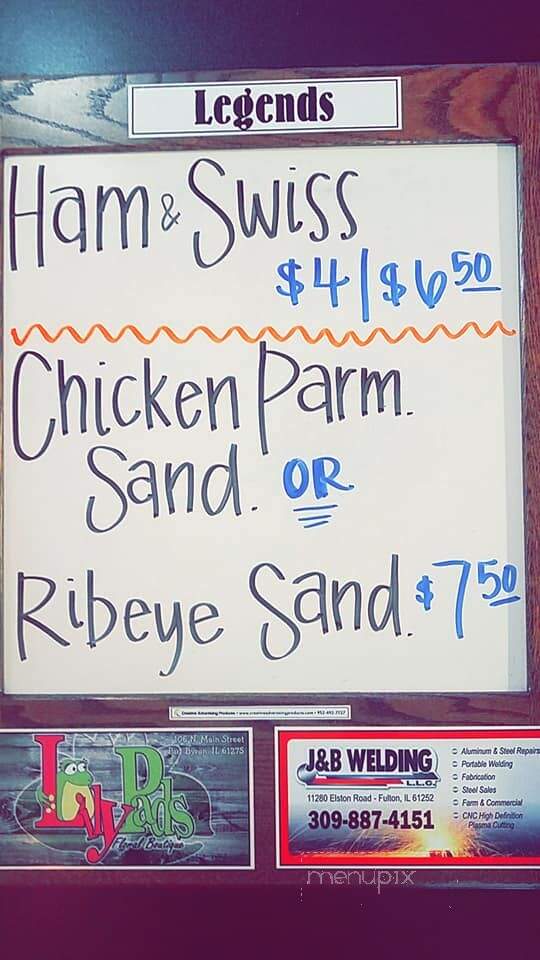 Legends
Ham & Swiss
$4 | $6 50
Chicken Parm.
Sand. OR
Ribeye Sand. $7 50
Creative Advertising Products • www.creativeadvertisingproducts.com • 952-492-2227
106 N. Main Street
Port Byron, IL 61275
Lily Pads
Floral Boutique
J&B WELDING
L.L.C.
11280 Elston Road - Fulton, IL 61252
309-887-4151
Aluminum & Steel Repairs
Portable Welding
Fabrication
Steel Sales
Farm & Commercial
CNC High Definition
Plasma Cutting
menupix